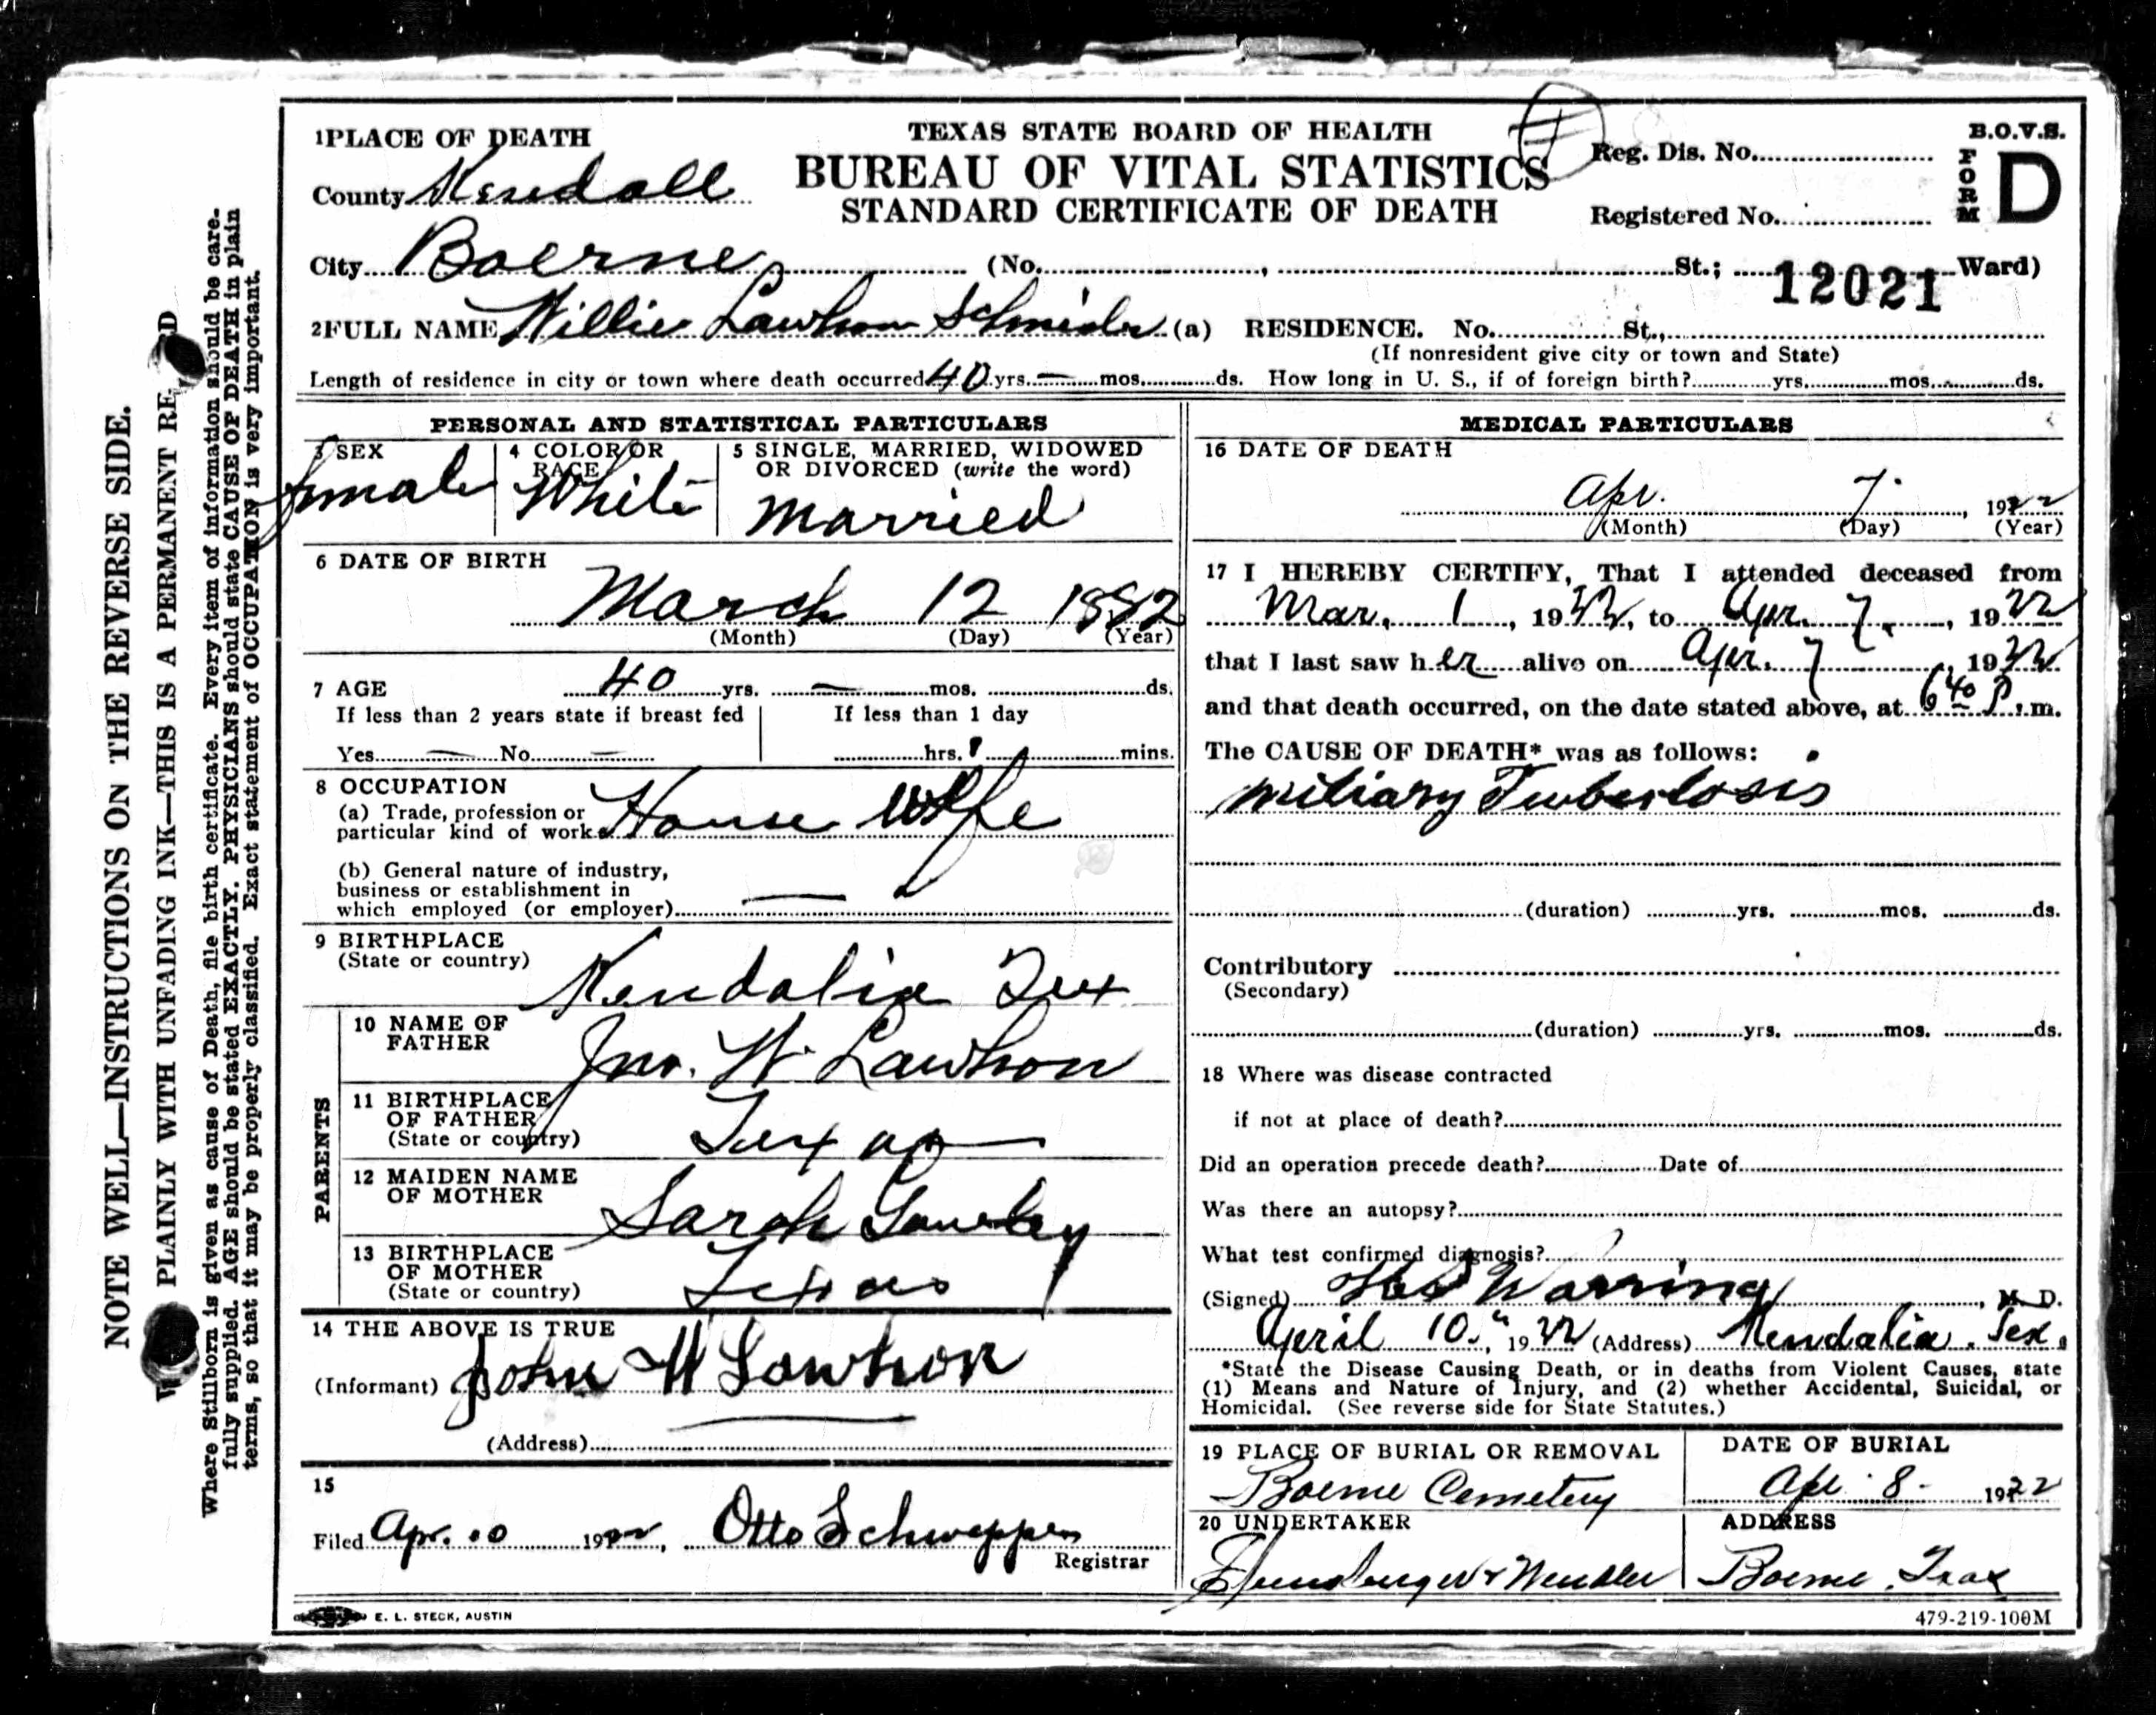 1 PLACE OF DEATH
TEXAS STATE BOARD OF HEALTH
BUREAU OF VITAL STATISTICS
STANDARD CERTIFICATE OF DEATH
Reg. Dis. No.
Registered No.
B.O.V.S.
FORM D
County Kendall
City Boerne (No. , St.; Ward)
12021
2 FULL NAME Willie Lawhon (a) RESIDENCE. No. St.,
(If nonresident give city or town and State)
Length of residence in city or town where death occurred 40 yrs. — mos. ds. How long in U. S., if of foreign birth? yrs. mos. ds.
PERSONAL AND STATISTICAL PARTICULARS
3 SEX
female
4 COLOR OR RACE
White
5 SINGLE, MARRIED, WIDOWED
OR DIVORCED (write the word)
Married
6 DATE OF BIRTH
March 12 1882
(Month) (Day) (Year)
7 AGE 40 yrs. — mos. ds.
If less than 2 years state if breast fed
Yes — No —
If less than 1 day
hrs. mins.
8 OCCUPATION
(a) Trade, profession or
particular kind of work House Wife
(b) General nature of industry,
business or establishment in
which employed (or employer) —
9 BIRTHPLACE
(State or country)
Kendalia Tex
PARENTS
10 NAME OF
FATHER
Jno. W. Lawhon
11 BIRTHPLACE
OF FATHER
(State or country)
Texas
12 MAIDEN NAME
OF MOTHER
Sarah
13 BIRTHPLACE
OF MOTHER
(State or country)
Texas
14 THE ABOVE IS TRUE
(Informant) John W Lawhon
(Address)
15
Filed Apr. 10 1922, Otto Schweppe
Registrar
E. L. STECK, AUSTIN
MEDICAL PARTICULARS
16 DATE OF DEATH
Apr. 7. , 1922
(Month) (Day) (Year)
17 I HEREBY CERTIFY, That I attended deceased from
Mar. 1 , 1922, to Apr. 7. , 1922
that I last saw her alive on Apr. 7 , 1922
and that death occurred, on the date stated above, at 6 40 P. m.
The CAUSE OF DEATH* was as follows:
Miliary Tuberlosis
(duration) yrs. mos. ds.
Contributory
(Secondary)
(duration) yrs. mos. ds.
18 Where was disease contracted
if not at place of death?
Did an operation precede death? Date of
Was there an autopsy?
What test confirmed diagnosis?
(Signed) Warring , M. D.
April 10. , 1922 (Address) Kendalia. Tex.
*State the Disease Causing Death, or in deaths from Violent Causes, state
(1) Means and Nature of Injury, and (2) whether Accidental, Suicidal, or
Homicidal. (See reverse side for State Statutes.)
19 PLACE OF BURIAL OR REMOVAL
Boerne Cemetery
DATE OF BURIAL
Apr. 8. 1922
20 UNDERTAKER
ADDRESS
Boerne, Texas
479-219-100M
NOTE WELL—INSTRUCTIONS ON THE REVERSE SIDE.
PLAINLY WITH UNFADING INK—THIS IS A PERMANENT RE D
Where Stillborn is given as cause of Death, file birth certificate. Every item of information should be care-
fully supplied. AGE should be stated EXACTLY. PHYSICIANS should state CAUSE OF DEATH in plain
terms, so that it may be properly classified. Exact statement of OCCUPATION is very important.